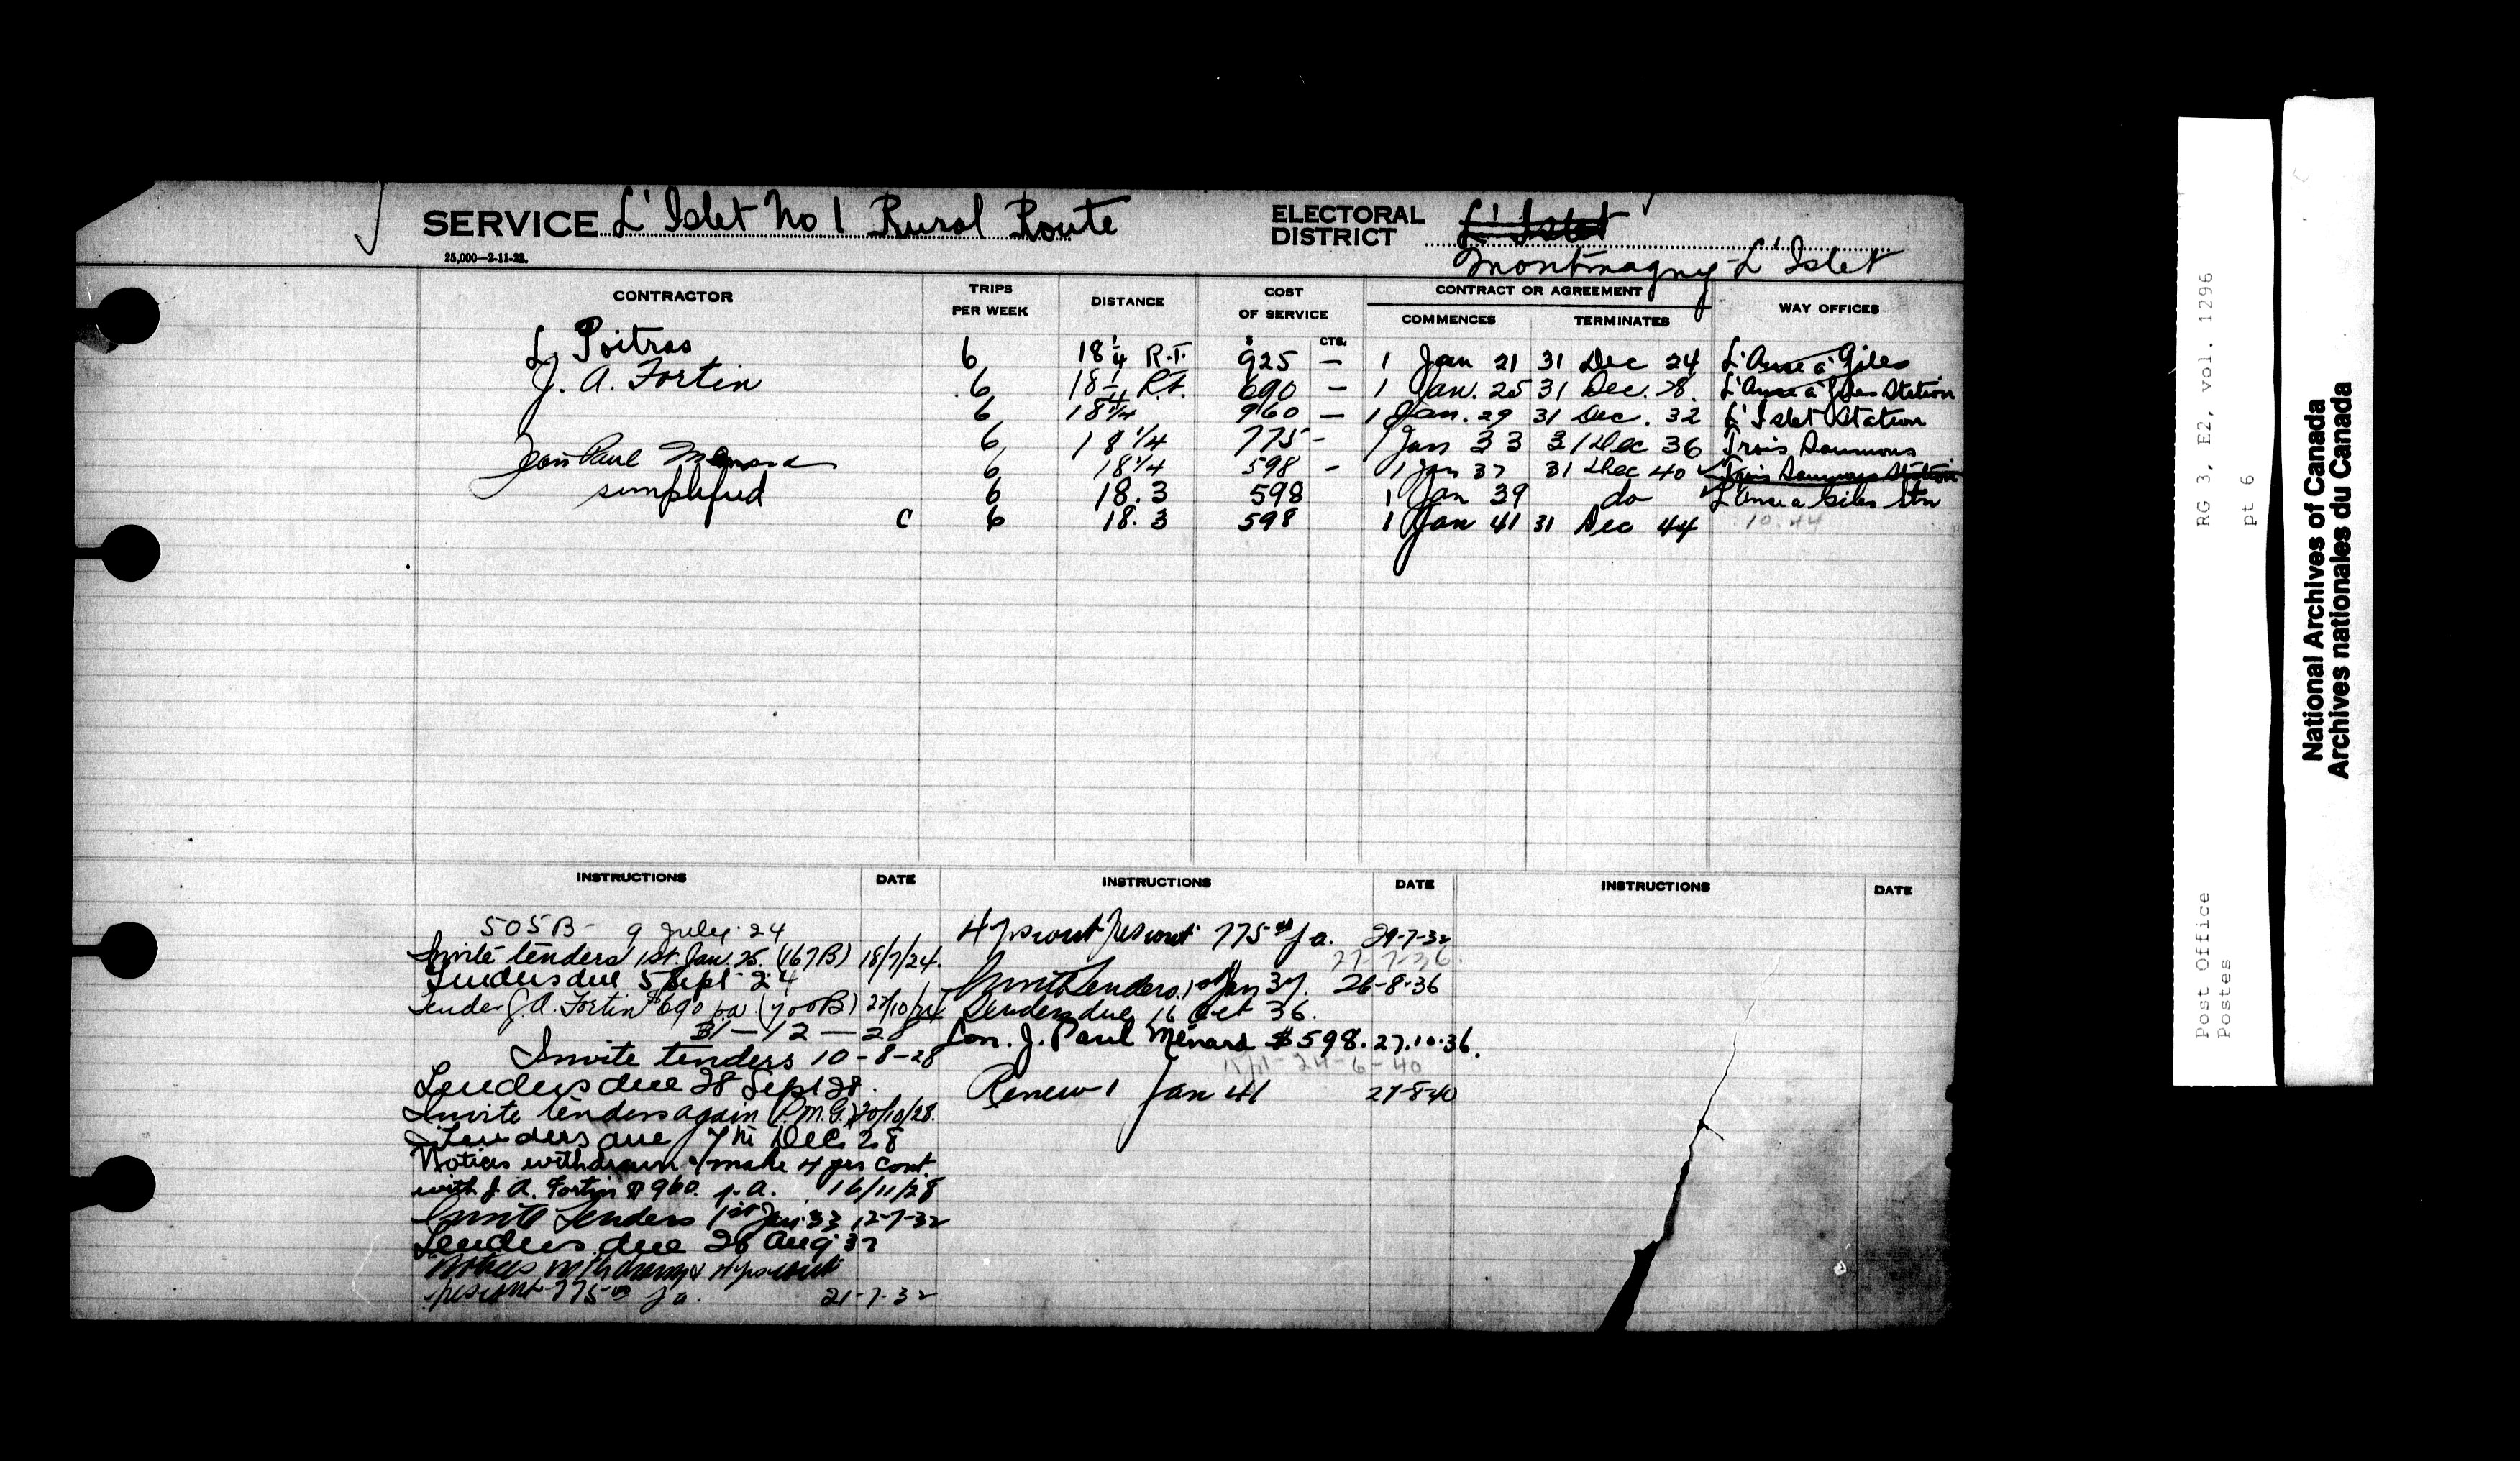 SERVICE L'Islet No 1 Rural Route
ELECTORAL DISTRICT L'Islet
Montmagny-L'Islet
25,000—2-11-22.
CONTRACTOR TRIPS PER WEEK DISTANCE COST OF SERVICE CONTRACT OR AGREEMENT COMMENCES TERMINATES WAY OFFICES
$ CTS.
L. Poitras 6 18 1/4 R.T. 925 — 1 Jan 21 31 Dec 24 L'Anse à Giles
J. A. Fortin 6 18 1/4 R.T. 690 — 1 Jan. 25 31 Dec. 28. L'Anse à Giles Station
6 18 1/4 960 — 1 Jan. 29 31 Dec. 32 L'Islet Station
6 18 1/4 775 - 1 Jan 33 31 Dec 36 Trois Saumons
Jean Paul Menard 6 18 1/4 598 - 1 Jan 37 31 Dec 40 Trois Saumons Station
simplified 6 18.3 598 1 Jan 39 do L'Anse a Giles Stn
C 6 18.3 598 1 Jan 41 31 Dec 44 10.44
INSTRUCTIONS DATE INSTRUCTIONS DATE INSTRUCTIONS DATE
505B- 9 July 24
Invite tenders 1st. Jan. 25. (167B) 18/7/24.
Tenders due 5 Sept 24
Tender J. A. Fortin $690 pa. (700B) 27/10/24
31-12-28
Invite tenders 10-8-28
Tenders due 28 Sept 28.
Invite tenders again (P.M.G.) 20/10/28.
Tenders due 7th Dec 28
Notices withdrawn & make 4 yrs cont.
with J. A. Fortin $960. p.a. 16/11/28
Invite Tenders 1st Jan 33 12-7-32
Tenders due 26 Aug 32
Notices withdrawn 4 yrs cont
775 00 p a. 21-7-32
4 yrs cont 775 00 p a. 29-7-32
27-7-36.
Invite Tenders 1st Jan 37. 26-8-36
Tenders due 16 Oct 36.
Con. J. Paul Ménard $598. 27.10.36.
24-6-40
Renew 1 Jan 41 27-8-40
RG 3, E2, vol. 1296
pt 6
Post Office
Postes
National Archives of Canada
Archives nationales du Canada